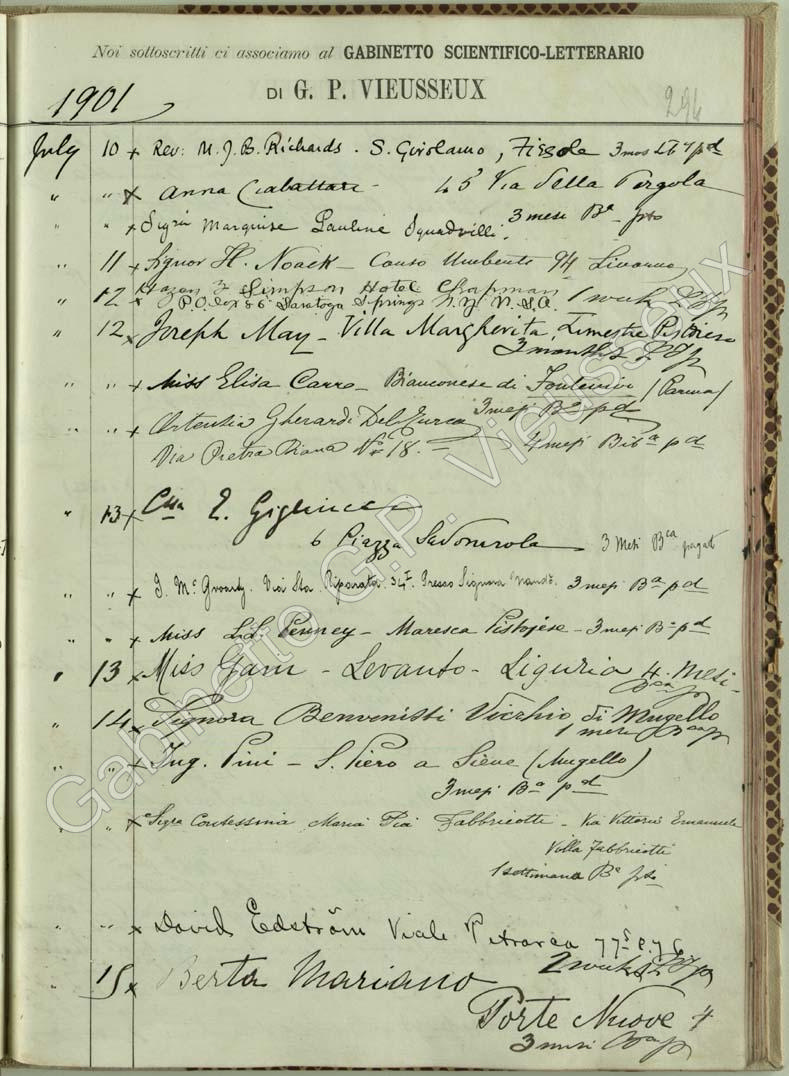 Noi sottoscritti ci associamo al GABINETTO SCIENTIFICO-LETTERARIO
DI G. P. VIEUSSEUX
1901
294
July 10 x Rev: M. J. B. Richards. S. Girolamo, Fiesole 3 mos pd
" " x Anna Ciabattari 45 Via della Pergola
3 mesi Ba pto
" " x Sigra Marquise Pauline
" 11 x Signor H. Noack - Corso Umberto 94 Livorno
" 12 x Simpson Hotel Chapman 1 week
P.O. Box 86 Saratoga Springs N.Y. U.S.A.
12 x Joseph May - Villa Margherita, Limestre Pistoiese
3 months
" " x Miss Elisa Carro - Bianconese di (Parma)
3 mesi Ba pd
" " x Ortensia Gherardi Del Turco
Via Pietra Piana No 18. - 4 mesi Biba pd
" 13 x Cssa
6 Piazza Savonarola 3 Mesi Bca pagati
" " x Via Sta. Riparata. 34 Presso Signora 3 mesi Ba pd
" " x Miss L.L. Penney - Maresca Pistojese - 3 mesi Ba pd
" 13 x Miss - Levanto - Liguria 4. Mesi -
" 14 x Signora Benvenisti Vicchio di Mugello
1 mese
" " x Ing. Pini - S. Piero a Sieve (Mugello)
3 mesi Ba pd
" " x Sigra Contessina Maria Pia Fabbricotti - Via Vittorio Emanuele
Villa Fabbricotti
1 settimana Ba pto
" " x David Edström Viale Petrarca
2 weeks
" 15 x Berta Mariano
Porte Nuove 4
3 mesi
Gabinetto G.P. Vieusseux